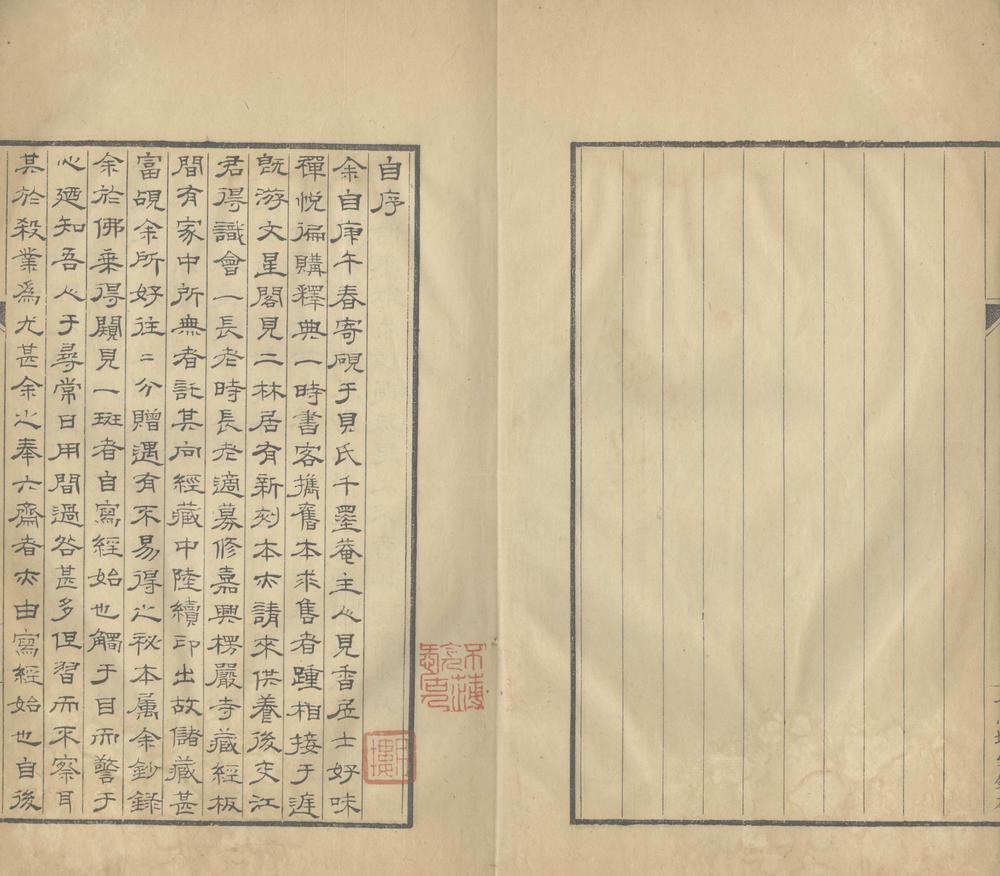 自序
余自庚午春寄硯于貝氏千墨菴主心見香居士好味
禪悅徧購釋典一時書客擕舊本求售者踵相接于遅
旣游文星閣見二林居有新刻本亦請來供養後交江
君得識會一長老時長老適募修嘉興楞嚴寺藏經板
間有家中所無者託其向經藏中陸續印出故儲藏甚
富覘余所好往二分贈遇有不易得之秘本屬余鈔錄
余於佛乗得闚見一斑者自寫經始也觸于目而警于
心廼知吾心于尋常日用間過咎甚多但習而不察耳
其於殺業爲尤甚余之奉六齋者亦由寫經始也自後